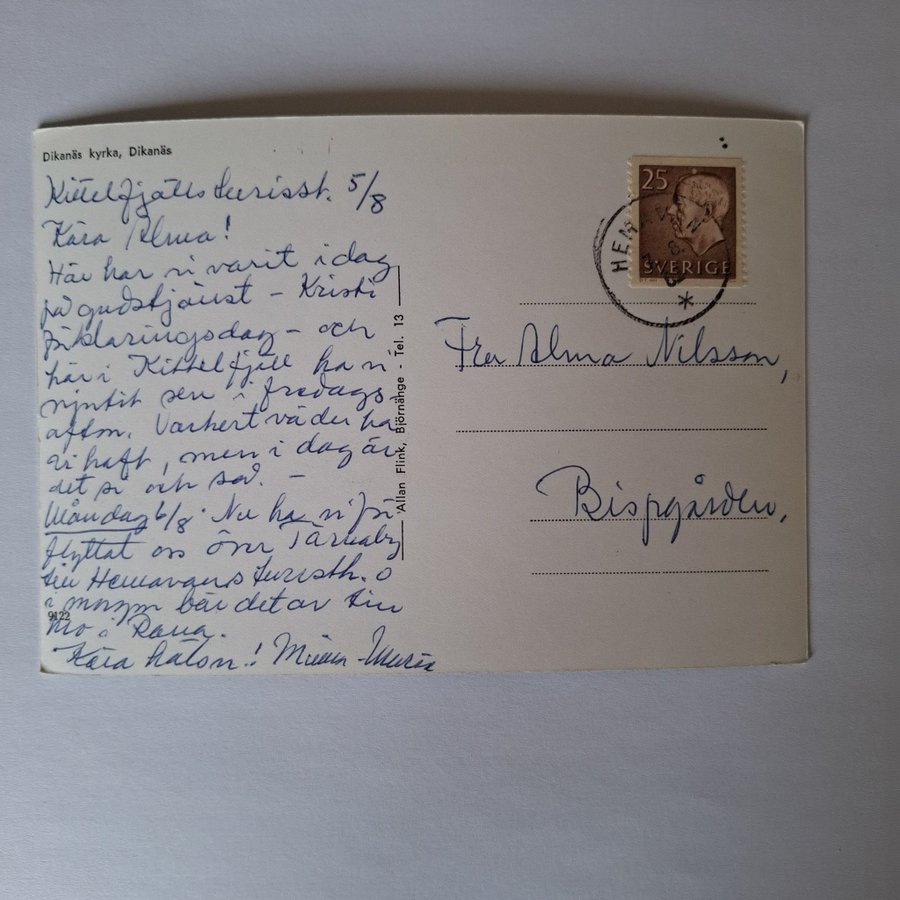 Dikanäs kyrka, Dikanäs
Kittelfjälls turistst. 5/8
Kära Alma!
Här har vi varit i dag
på gudstjänst - Kristi
förklaringsdag - och
här i Kittelfjäll ha vi
njutit sen i fredags-
afton. Vackert väder ha
vi haft, men i dag är
det så och så. -
Måndag 6/8. Nu ha vi
flyttat oss över Tärnaby
till Hemavans turisth. o
i morgon bär det av till
Mo i Rana.
Kära hälsn.!
9122
Allan Flink, Björnänge - Tel. 13
25
SVERIGE
Fru Alma Nilsson,
Bispgården,